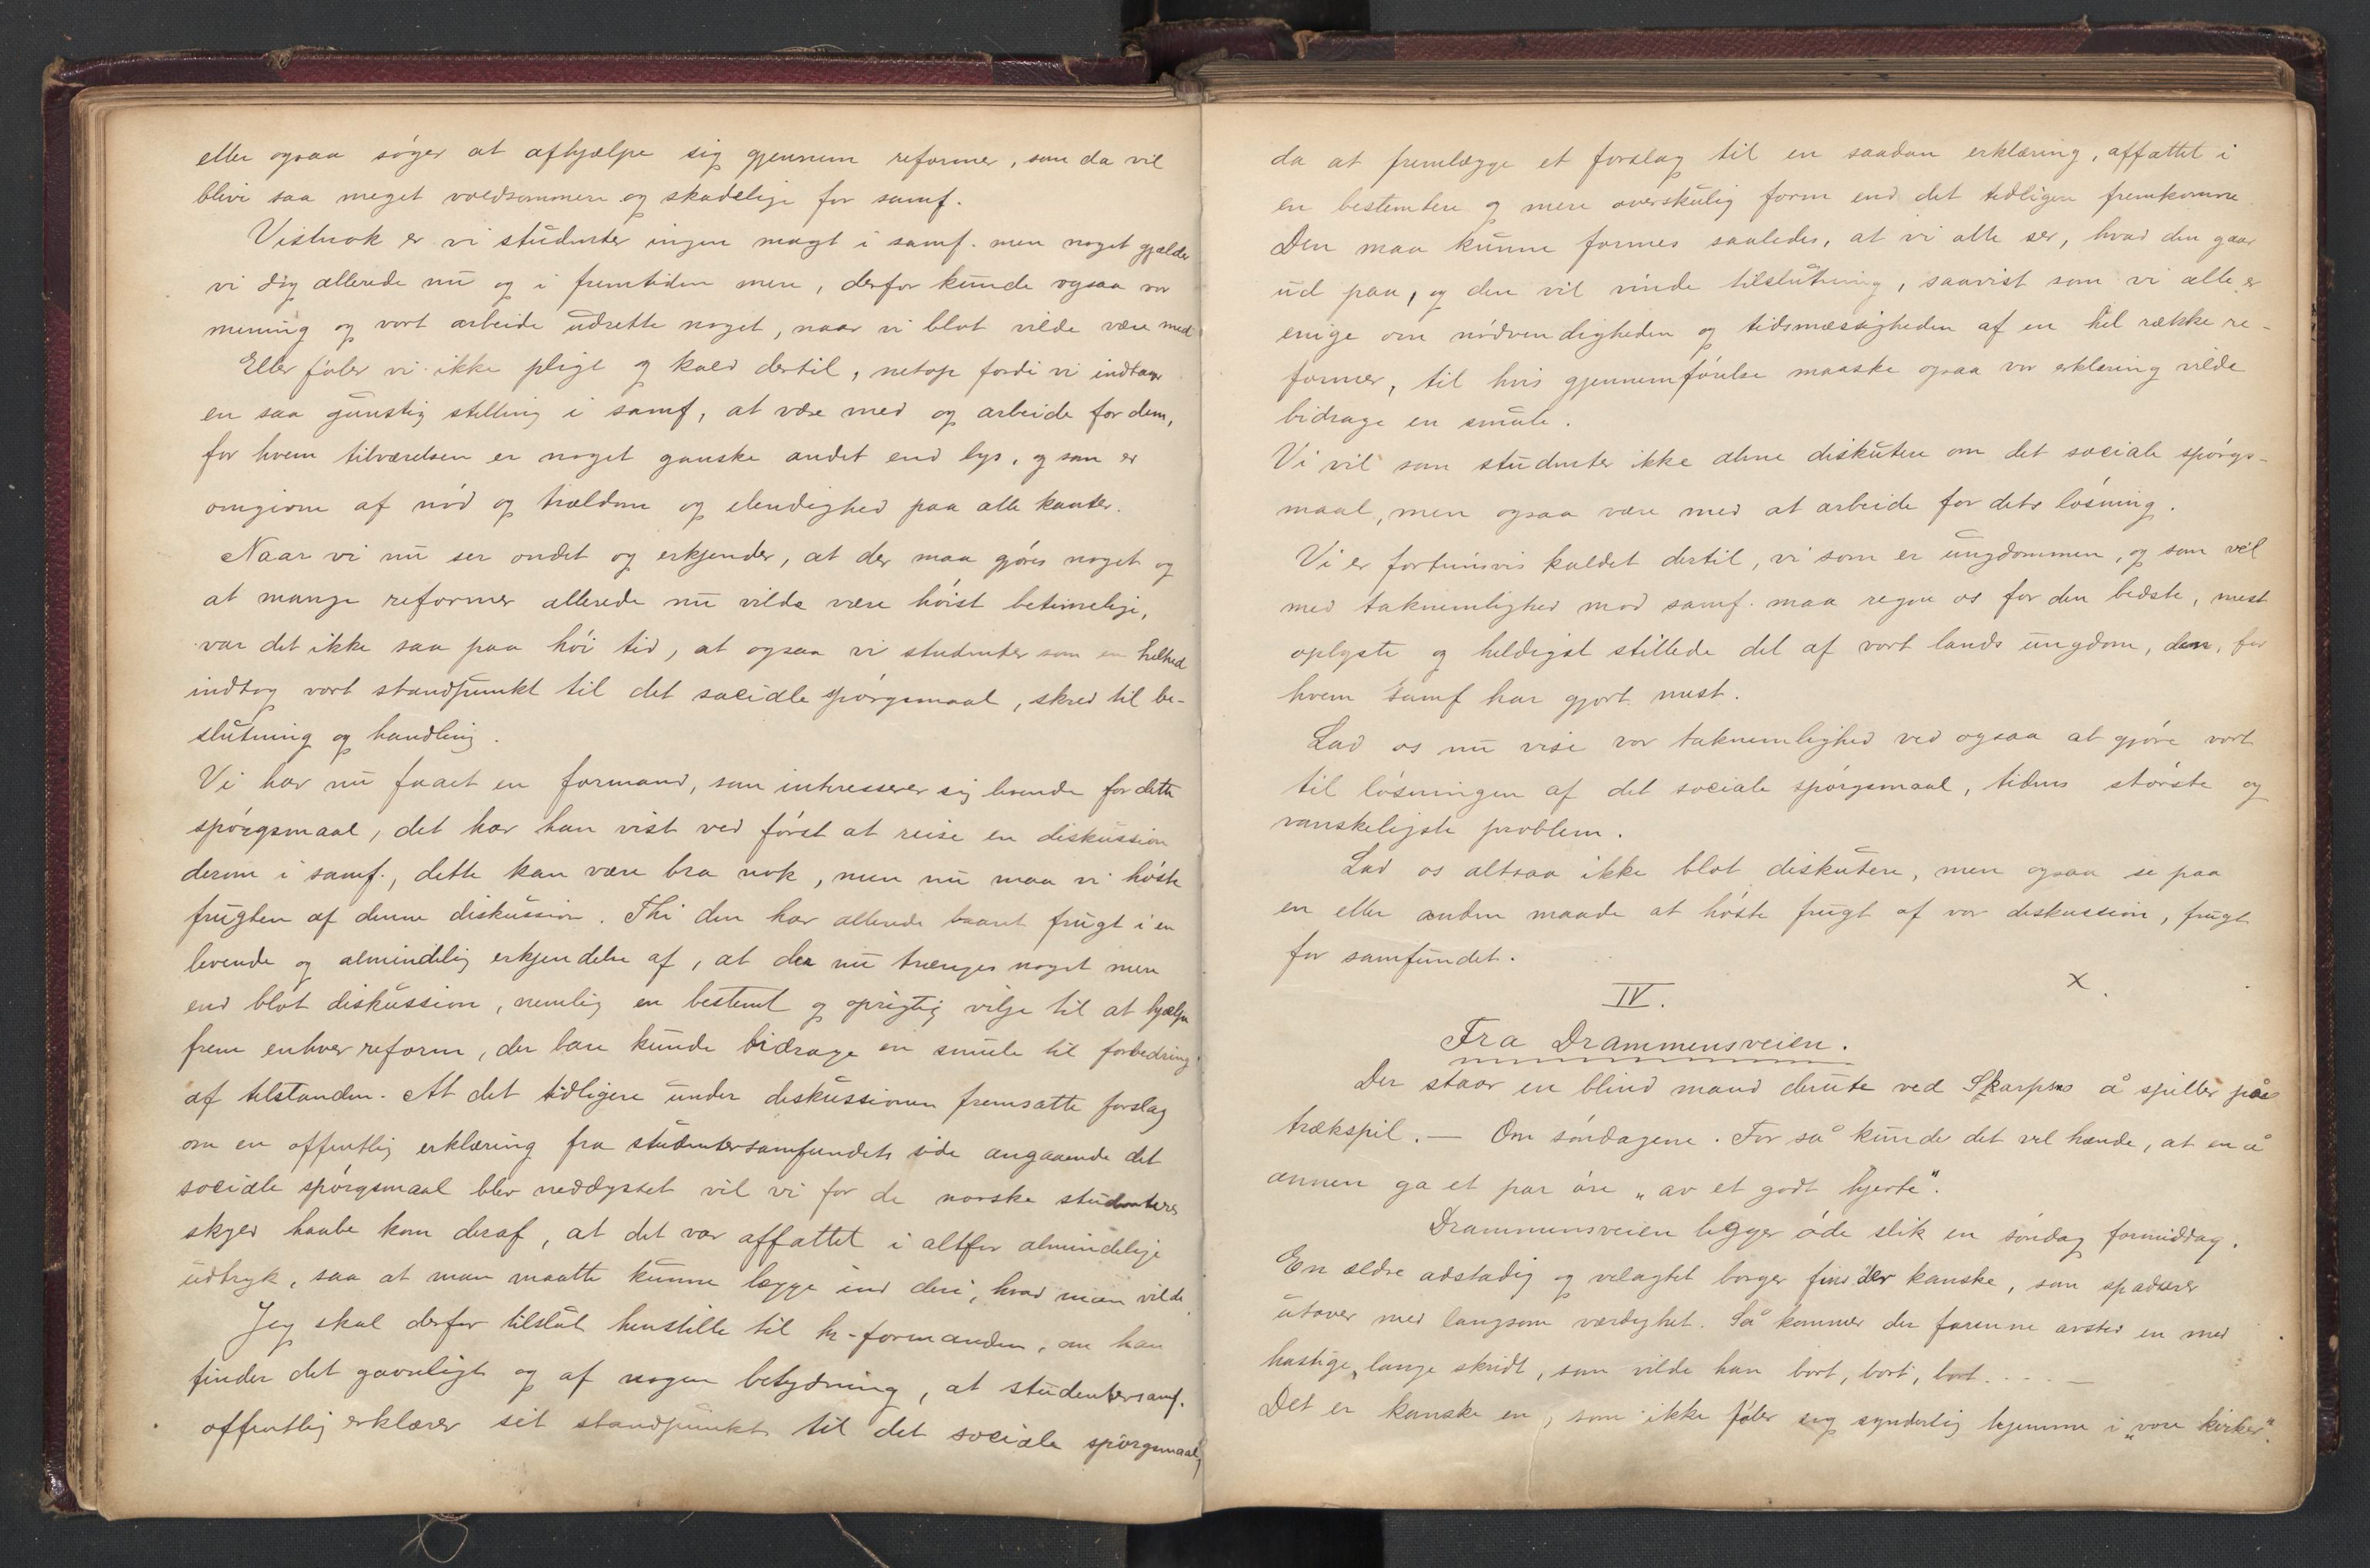 eller ogsaa søger at afhjælpe sig gjennem reformer, som da vil
blive saa meget voldsommere og skadelige for samf.
Vistnok er vi studenter ingen magt i samf. men noget gjælder
vi dog allerede nu og i fremtiden mere, derfor kunde ogsaa vor
mening og vort arbeide udrette noget, naar vi blot vilde være med
Eller føler vi ikke pligt og kald dertil, netop fordi vi indtar
en saa gunstig stilling i samf, at være med og arbeide for dem,
for hvem tilværelsen er noget ganske andet end lys, og som er
omgivne af nød og trældom og elendighed paa alle kanter.
Naar vi nu ser ondet og erkjender, at der maa gjøres noget og
at mange reformer allerede nu vilde være høist betimelige,
var det ikke saa paa høi tid, at ogsaa vi studenter som en helhed
indtog vort standpunkt til det sociale spørgsmaal, skred til be-
slutning og handling.
Vi har nu faaet en formand, som interesserer sig levende for dette
spørgsmaal, det har han vist ved først at reise en diskussion
derom i samf., dette kan være bra nok, men nu maa vi høste
frugten af denne diskussion. Thi den har allerede baaret frugt i en
levende og almindelig erkjendelse af, at der nu trænges noget mere
end blot diskussion, nemlig en bestemt og oprigtig vilje til at hjælpe
frem enhver reform, der bare kunde bidrage en smule til forbedring
af tilstanden. At det tidligere under diskussionen fremsatte forslag
om en offentlig erklæring fra studentersamfundets side angaaende det
sociale spørgsmaal blev neddysset vil vi for de norske studenters
skyld haabe kom deraf, at det var affattet i altfor almindelige
udtryk, saa at man maatte kunne lægge ind deri, hvad man vilde.
Jeg skal derfor tilslut henstille til hr-formanden, om han
finder det gavnligt og af nogen betydning, at studentersamf.
offentlig erklærer sit standpunkt til det sociale spørgsmaal,
da at fremlægge et forslag til en saadan erklæring, affattet i
en bestemtere og mere overskulig form end det tidligere fremkomne.
Den maa kunne formes saaledes, at vi alle ser, hvad den gaar
ud paa, og den vil vinde tilslutning, saavist som vi alle er
enige om nødvendigheden og tidsmæssigheden af en hel række re-
former, til hvis gjennemførelse maaske ogsaa vor erklæring vilde
bidrage en smule.
Vi vil som studenter ikke alene diskutere om det sociale spørgs-
maal, men ogsaa være med at arbeide for dets løsning.
Vi er fortrinsvis kaldet dertil, vi som er ungdommen, og som vel
med taknemlighed mod samf. maa regne os for den bedste, mest
oplyste og heldigst stillede del af vort lands ungdom, dem, for
hvem samf har gjort mest.
Lad os nu vise vor taknemlighed ved ogsaa at gjøre vort
til løsningen af det sociale spørgsmaal, tidens største og
vanskeligste problem.
Lad os altsaa ikke blot diskutere, men ogsaa se paa
en eller anden maade at høste frugt af vor diskussion, frugt
for samfundet.
X.
IV.
Fra Drammensveien.
Der staar en blind mand derute ved Skarpsno å spiller på
trækspil. — Om søndagene. For så kunde det vel hænde, at en å
annen ga et par øre „av et godt hjerte".
Drammensveien ligger øde slik en søndag formiddag.
En ældre adstadig og velagtet borger fins der kanske, som spadserer
utover med langsom værdighet. Så kommer der farenne avsted en med
hastige, lange skridt, som vilde han bort, bort, bort. . . . . —
Det er kanske en, som ikke føler seg synderlig hjemme i „vore kirker".